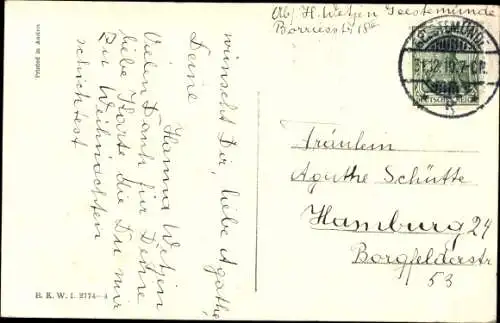 Abs. H. Wetjen Geestemünde
Borriesstr 18
GEESTEMÜNDE
31.12.13.7-8N.
DEUTSCHES REICH
Printed in Austria
wünscht Dir, liebe Agathe,
Deine
Hanna Wetjen
Vielen Dank für Deine
liebe Karte die Du mir
zu Weihnachten
schicktest
Fräulein
Agathe Schütte
Hamburg 24
Borgfelderstr
53
B. K. W. I. 2774-4